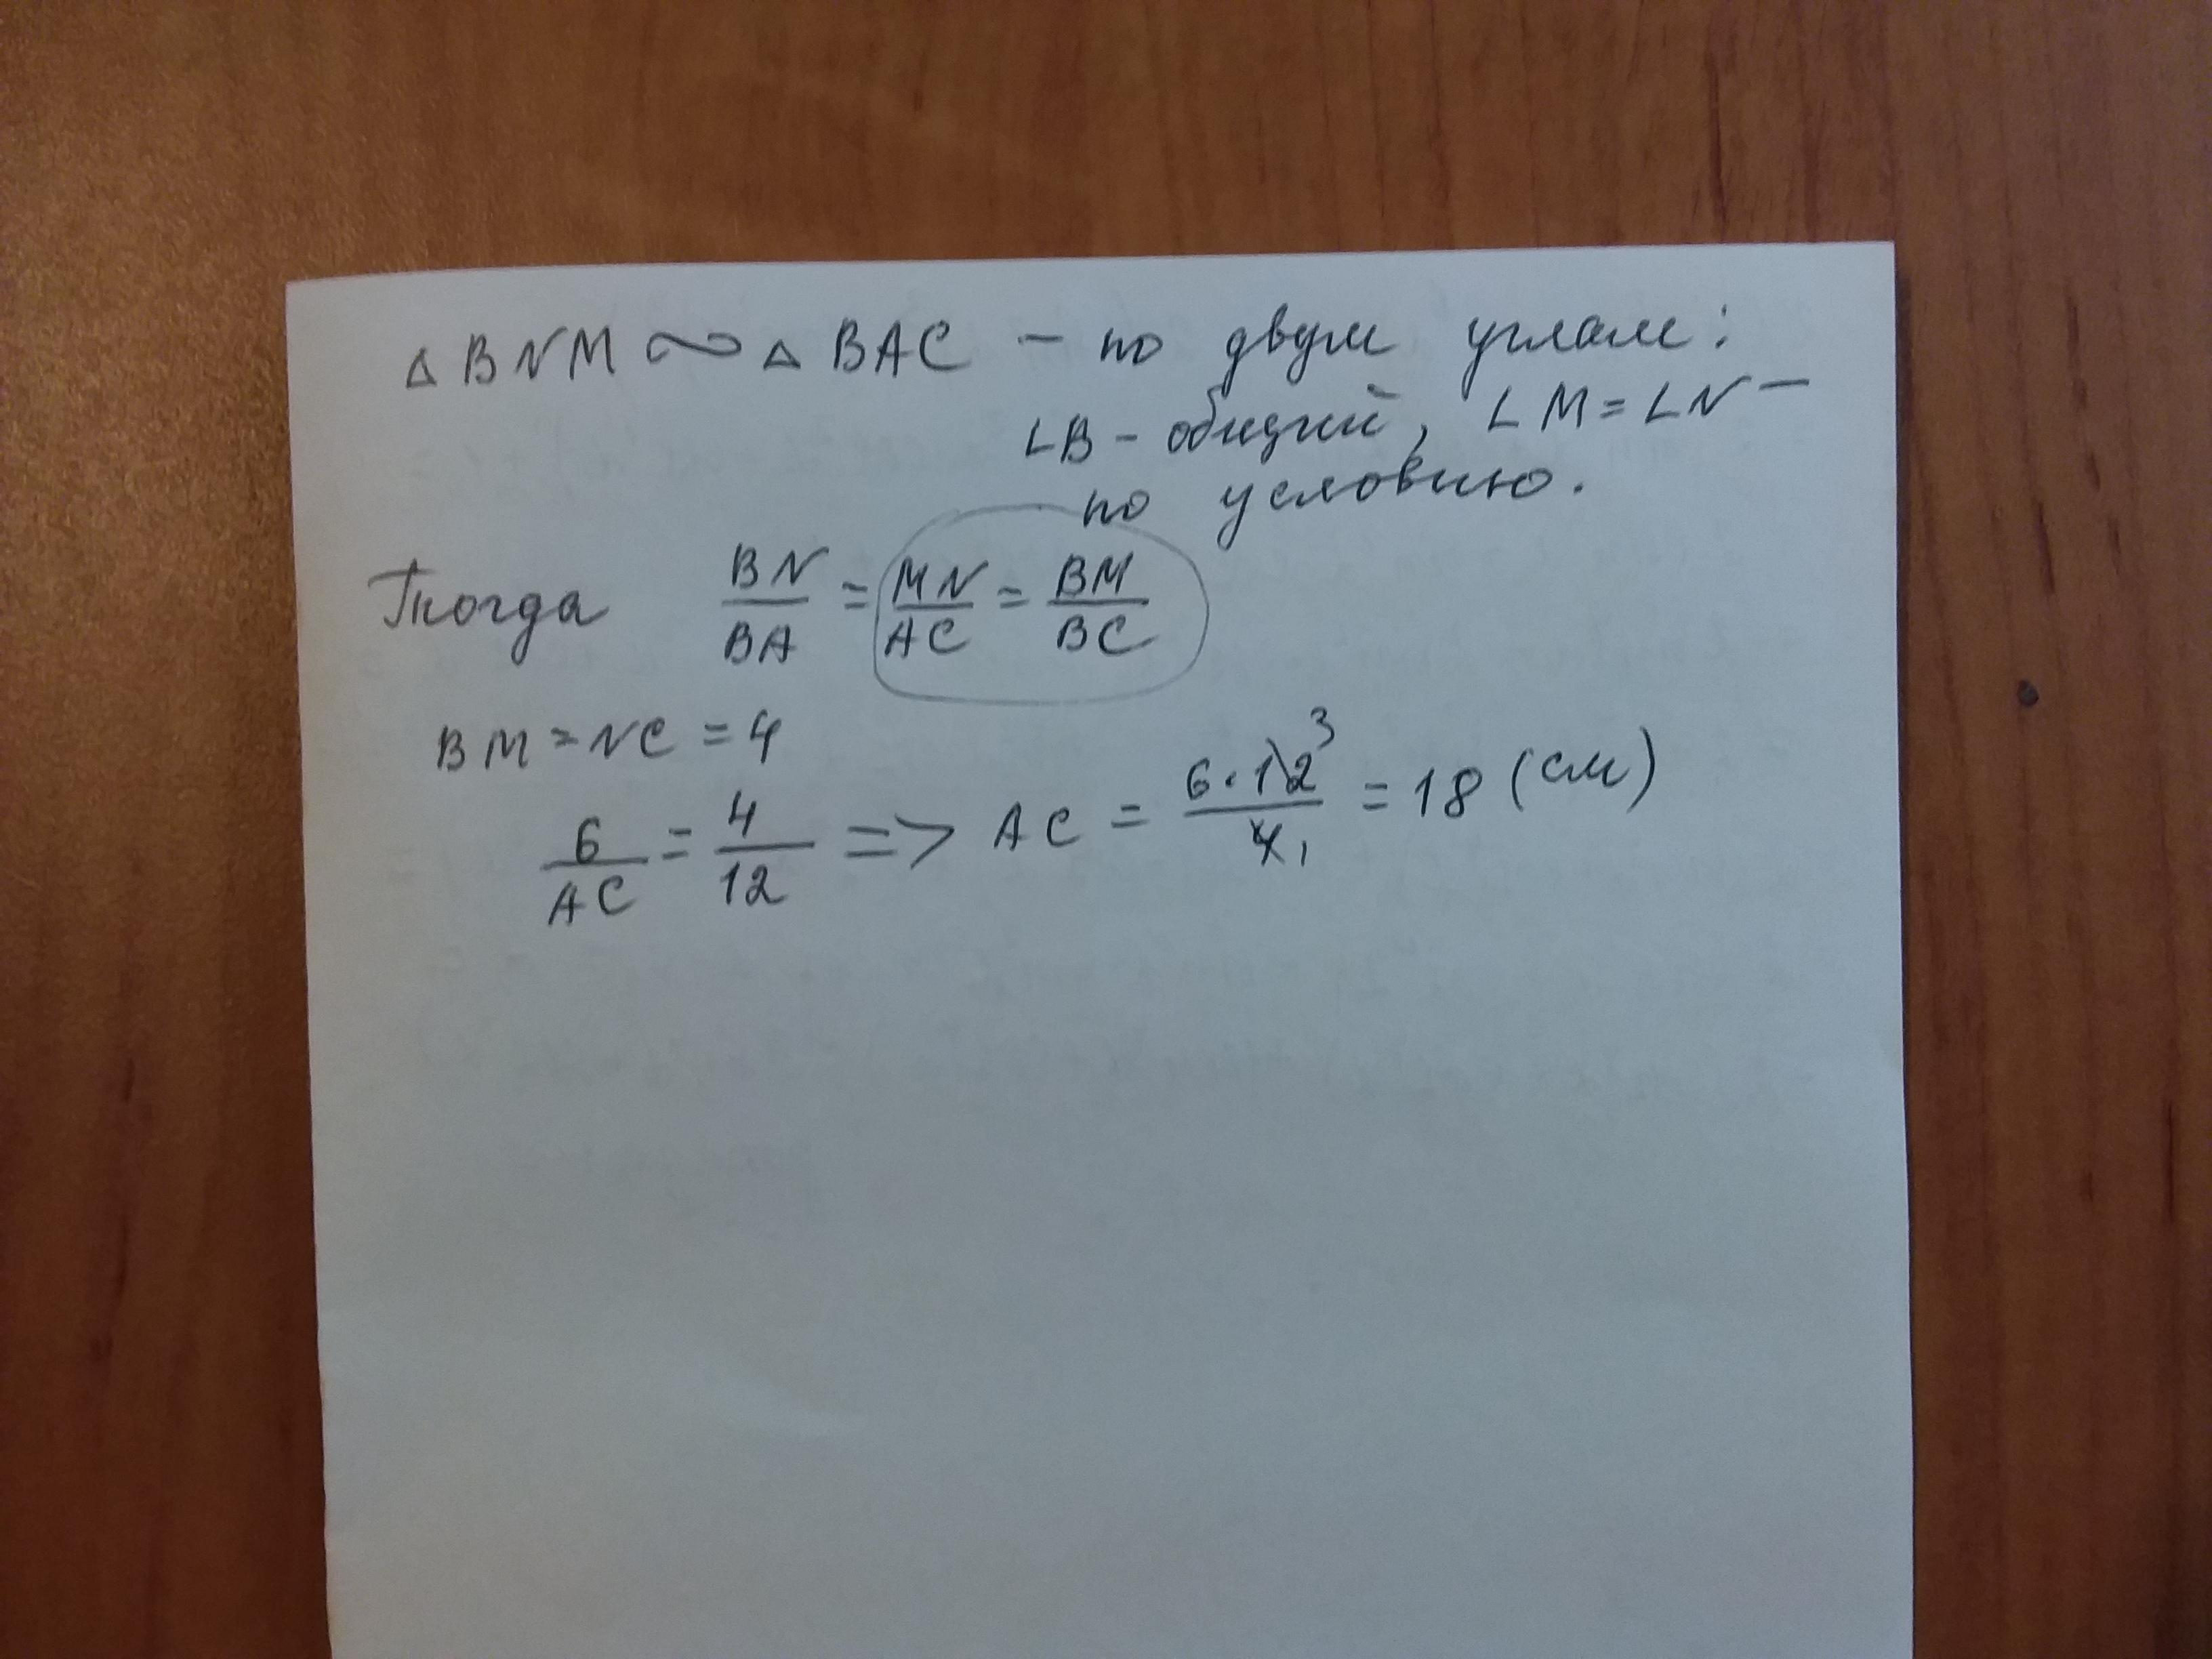 △BNM ∾ △BAC – по двум углам:
∠B – общий, ∠M = ∠N –
по условию.
Тогда BN/BA = MN/AC = BM/BC
BM = NC = 4
6/AC = 4/12 => AC = 6·12³/4₁ = 18 (см)